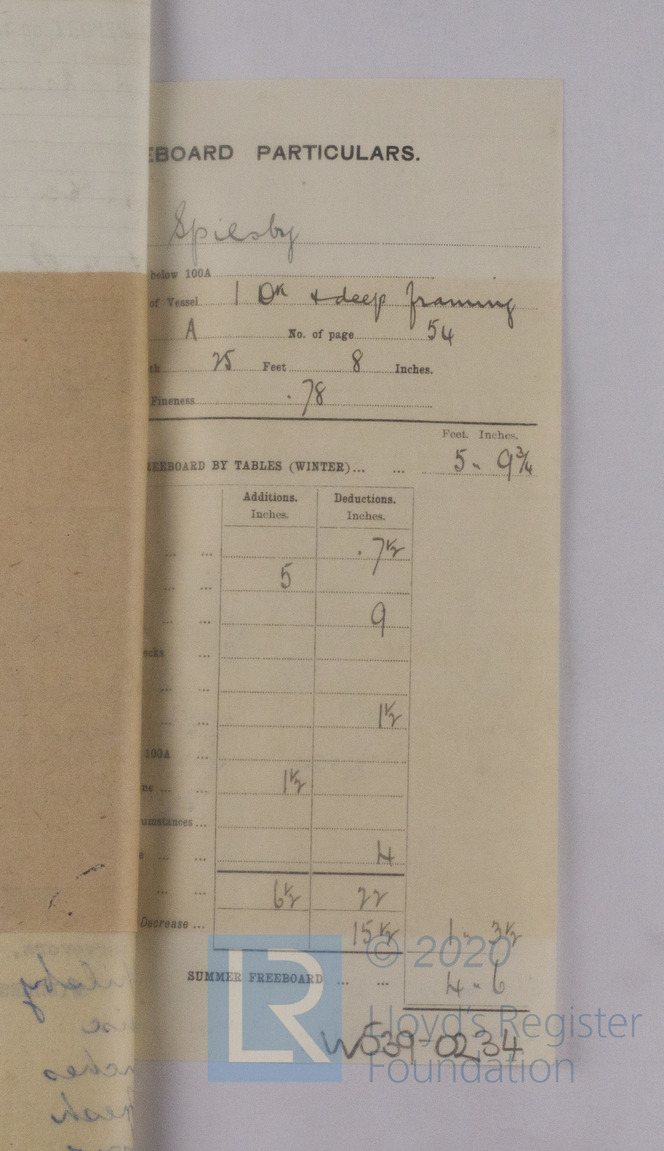 EBOARD PARTICULARS.
Spilsby
below 100A
of Vessel 1 Dk & deep framing
A No. of page 54
th 25 Feet 8 Inches.
Fineness .78
Feet. Inches.
REEBOARD BY TABLES (WINTER)... ... 5 " 9 3/4
Additions. Deductions.
Inches. Inches.
... ... . 7 1/2
... ... 5
... ... 9
ecks ...
... ...
... ... 1 1/2
100A ...
ne ... ... 1 1/2
umstances ...
e ... ... 4
... ... 6 1/2 22
Decrease ... 15 1/2 1 " 3 1/2
SUMMER FREEBOARD ... ... 4 " 6
W539-0234
© 2020
LR
Lloyd's Register
Foundation